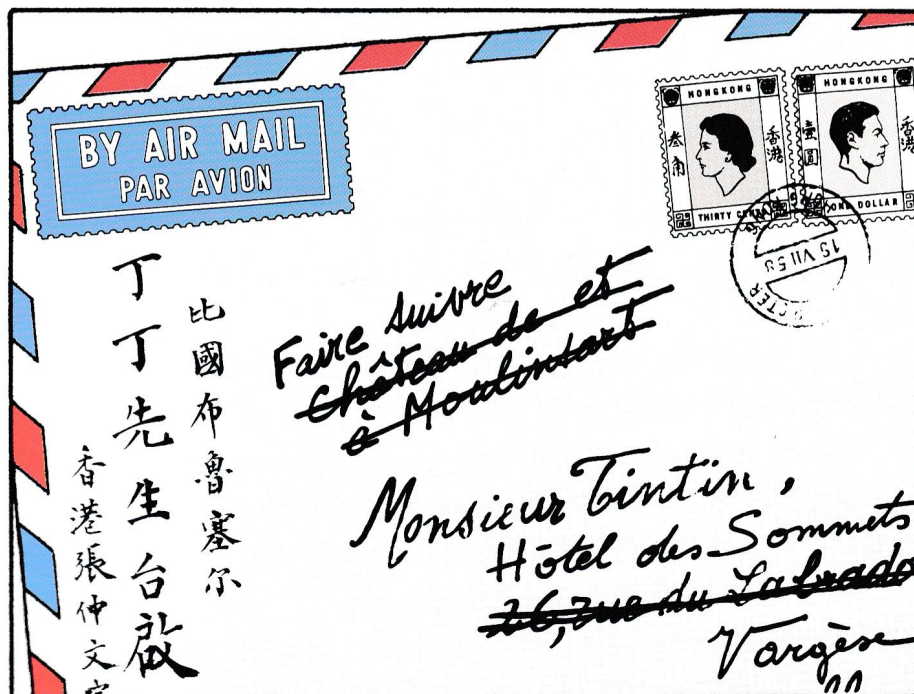 BY AIR MAIL
PAR AVION
HONGKONG
叁角
香港
THIRTY CENTS
HONGKONG
壹圓
香港
ONE DOLLAR
15 VII 58
Faire suivre
Château de et
à Moulinsart
Monsieur Tintin,
Hôtel des Sommets
26, rue du Labrado
Vargèse
比國布魯塞尔
丁丁先生台啟
香港張仲文